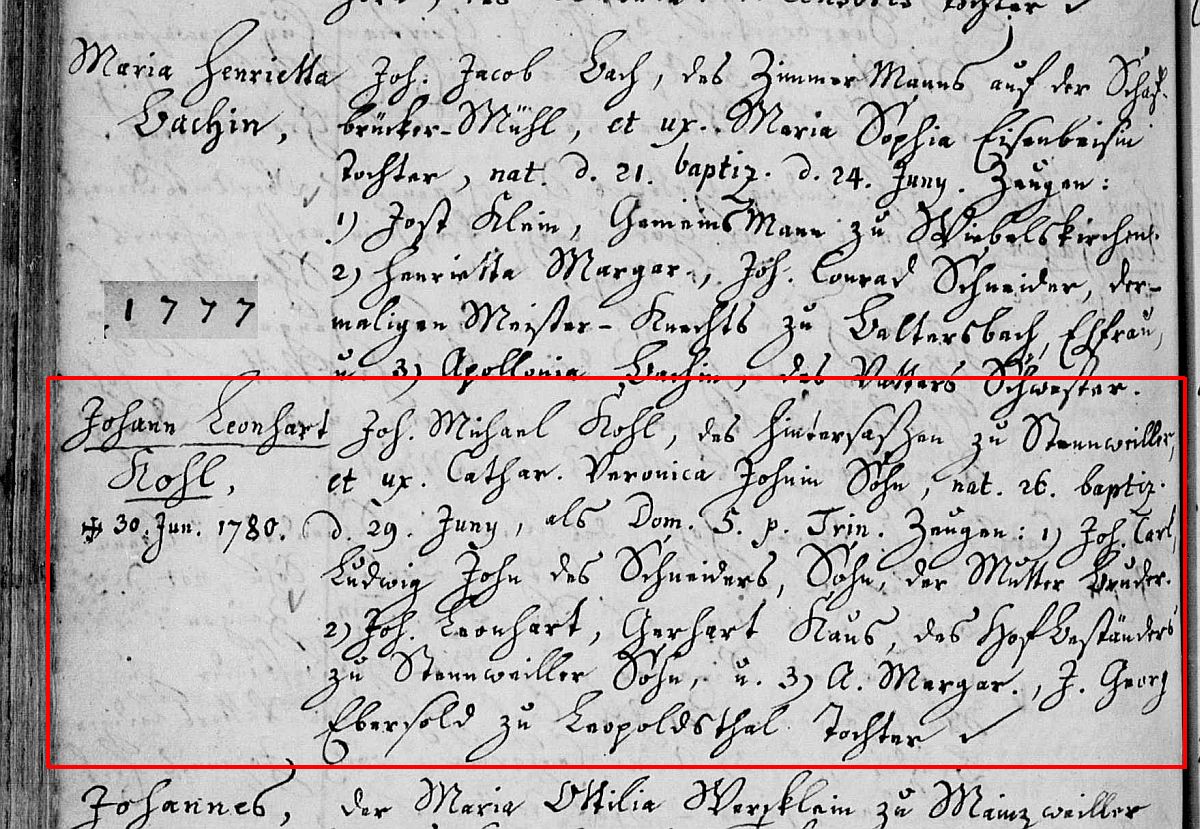 Tochter
Maria Henrietta Joh. Jacob Bach, des Zimmer Manns auf der Schaf-
Bachin, brücker-Mühl, et ux. Maria Sophia Eisenbeisin
Tochter, nat. d. 21. baptiz. d. 24. Juny. Zeugen:
1) Jost Klein, GemeinsMann zu Wiebelskirchen.
2) Henrietta Margar., Joh. Conrad Schneider, der-
1777 maligen Meister-Knechts zu Baltersbach, Ehfrau,
u. 3) Apollonia Bachin, des Vatters Schwester.
Johann Leonhart Joh. Michael Kohl, des Hintersaßen zu Stennweiller,
Kohl, et ux. Cathar. Veronica Johnin Sohn, nat. 26. baptiz.
30. Jun. 1780. d. 29. Juny, als Dom. 5. p. Trin. Zeugen: 1) Joh. Carl
Ludwig John des Schneiders, Sohn, der Mutter Bruder.
2) Joh. Leonhart, Gerhart Klaus, des HofBeständers
zu Stennweiller Sohn, u. 3) A. Margar., J. Georg
Ebersold zu Leopoldsthal Tochter
Johannes, der Maria Ottilia Werkklein zu Mainzweiller